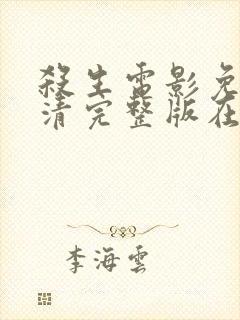 殺生電影免
清完整版在
李海雲